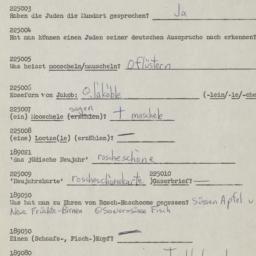 225003
Haben die Juden die Mundart gesprochen? Ja
225004
Hat man können einen Juden seiner deutschen Aussprache nach erkennen?
225005
Was heisst nooscheln/nuuscheln? flüstern
225006
Koseform von Jakob: Jäköble (-lein/-le/-che
225007 sagen
(ein) Mooschele (erzählen)? + moschele
225008
(ein) Lootze(le) (erzählen)? —
189021
'das jüdische Neujahr' roscheschone
225009 225010
'Neujahrskarte' roscheschonekarte )Gaserbrief? —
189030
Was hat man zu Ihren von Rosch-Haschoone gegessen? Süssen Apfel u
Neue Früchte-Birnen Fisch
189050
Einen (Schaafs-, Fisch-)Kopf? —
189080